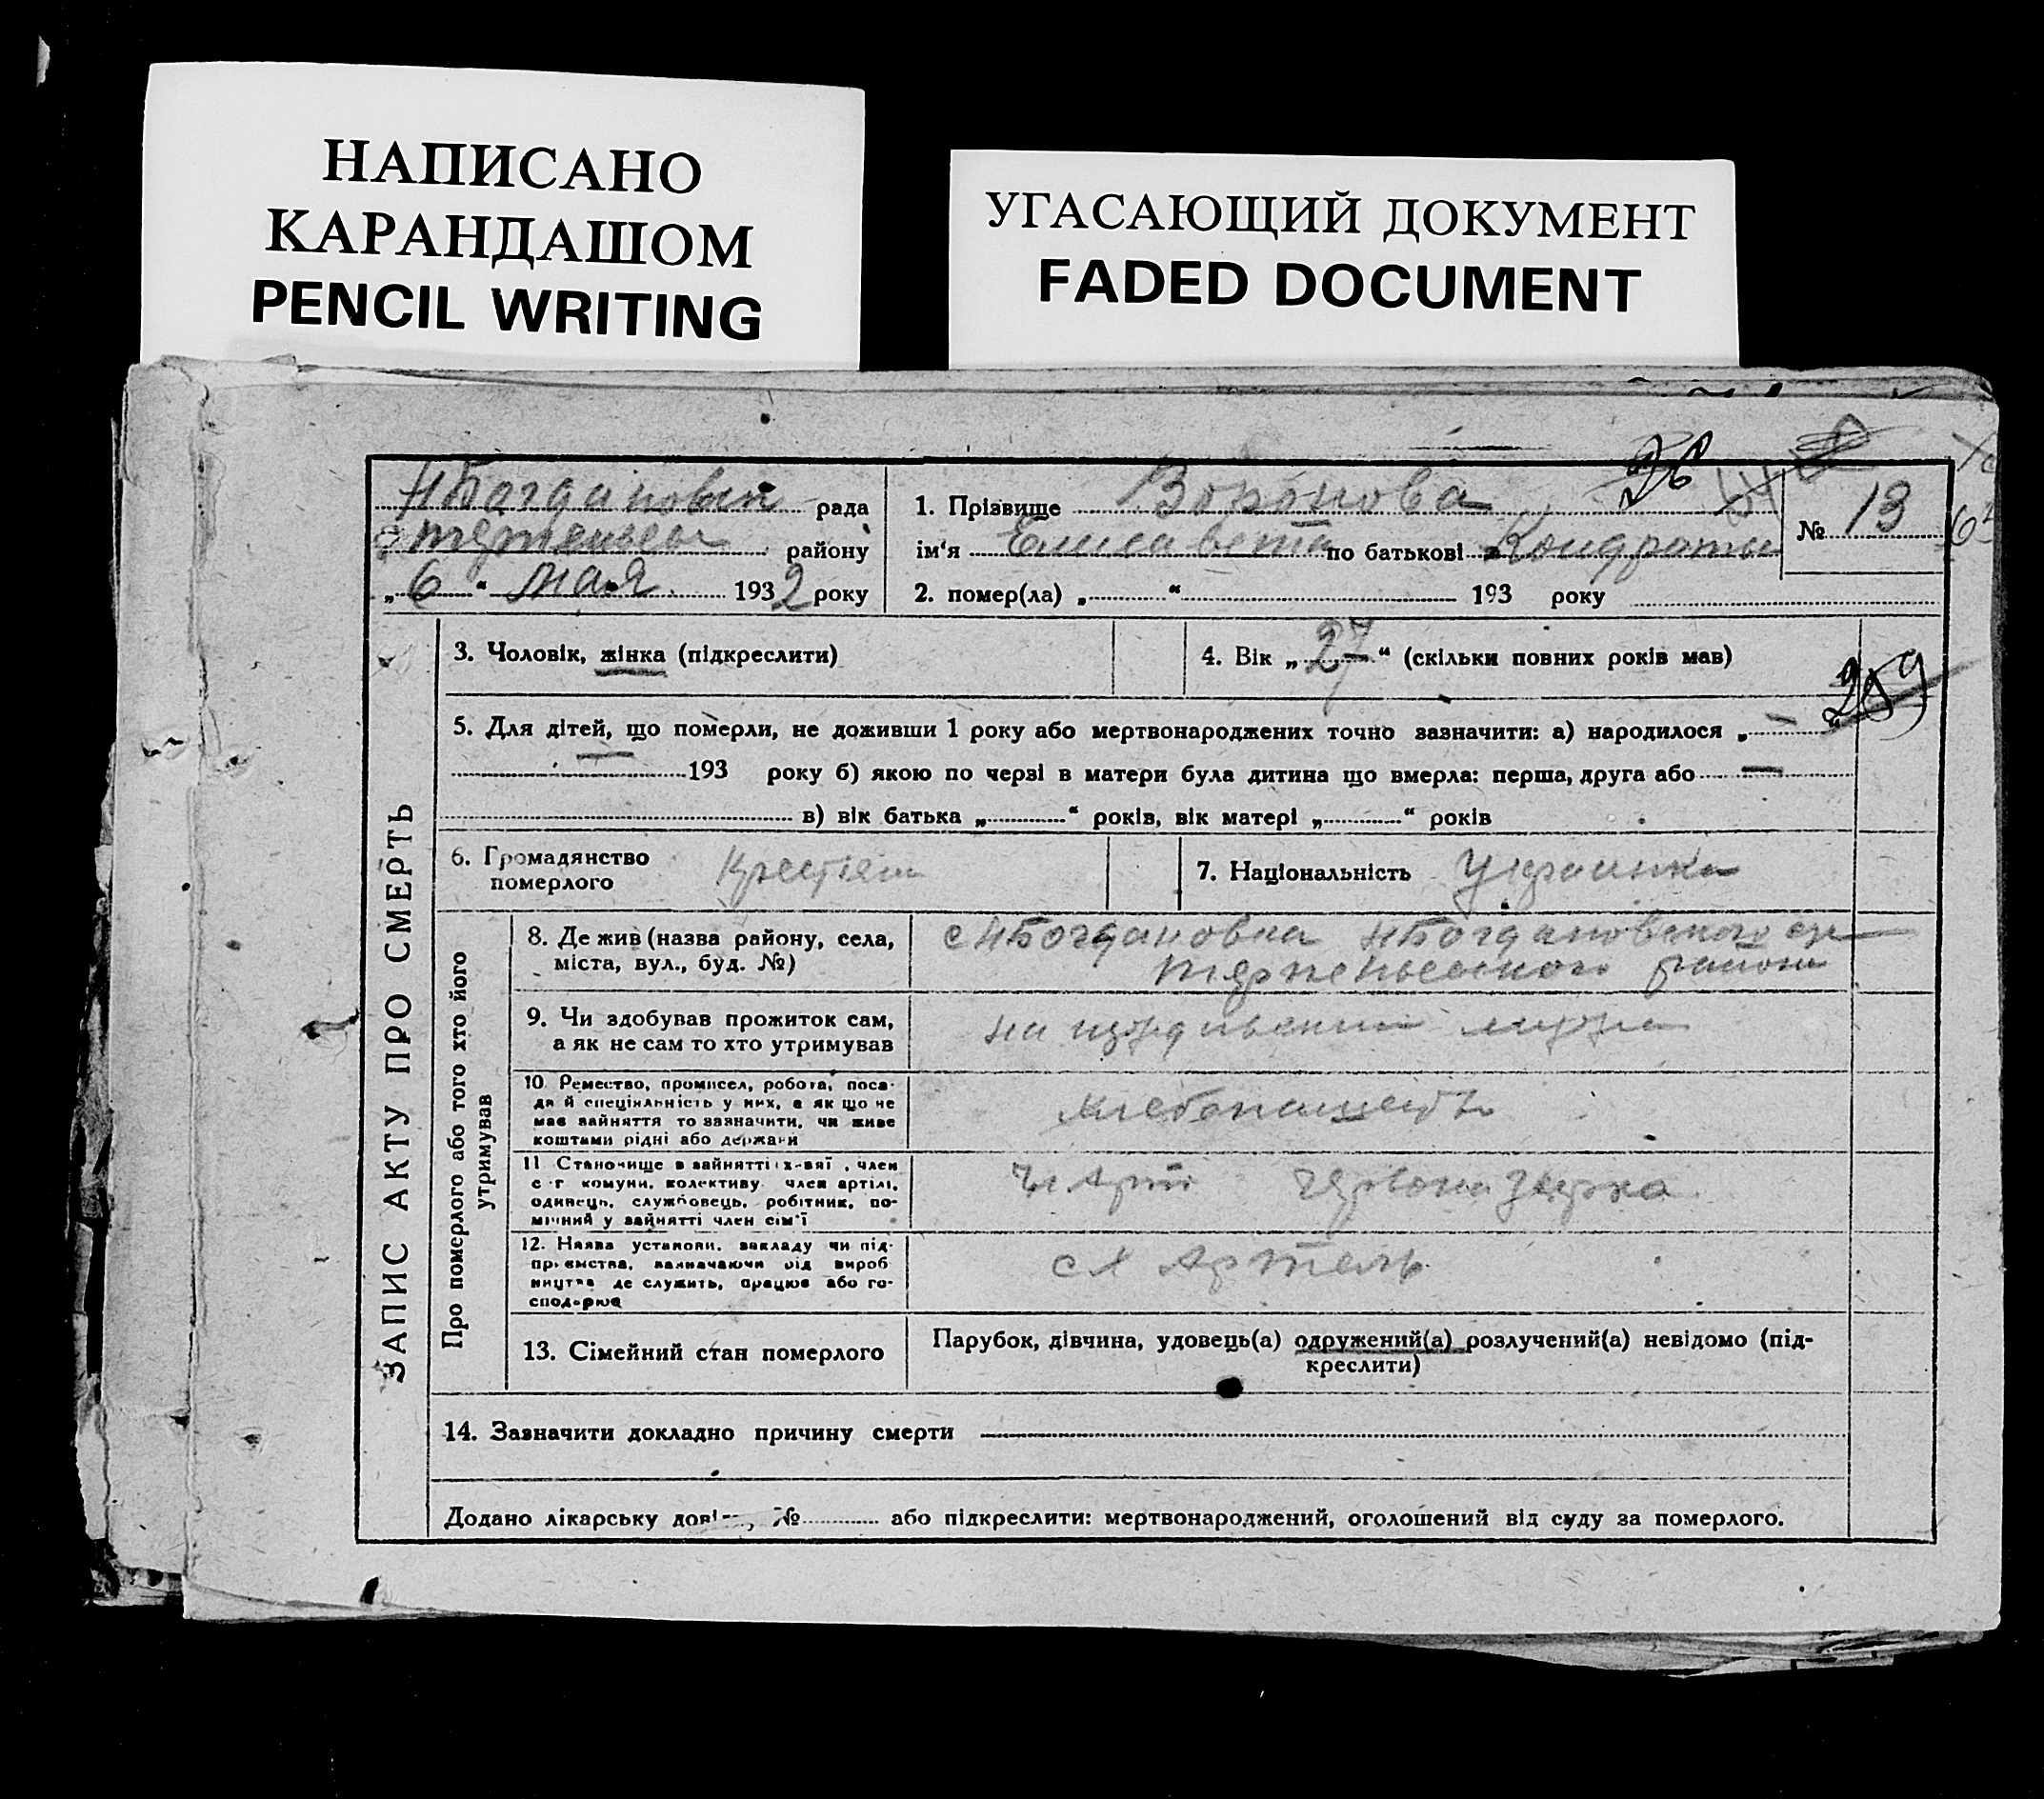 НАПИСАНО
КАРАНДАШОМ
PENCIL WRITING
УГАСАЮЩИЙ ДОКУМЕНТ
FADED DOCUMENT
ЗАПИС АКТУ ПРО СМЕРТЬ
НБогдановск рада
району
„6“ мая 1932 року
1. Прізвище Воронова
ім'я Елисавета по батькові Кондратьи
2. помер(ла) „ “ 193 року
28
№ 13
3. Чоловік, жінка (підкреслити)
4. Вік „27“ (скільки повних років мав)
259
5. Для дітей, що померли, не доживши 1 року або мертвонароджених точно зазначити: а) народилося „ —
193 року б) якою по черзі в матери була дитина що вмерла: перша, друга або —
в) вік батька „ “ років, вік матері „ “ років
6. Громадянство
померлого
7. Національність Украинка
Про померлого або того хто його
утримував
8. Де жив (назва району, села,
міста, вул., буд. №)
с НБогдановка НБогдановского с/с
района
9. Чи здобував прожиток сам,
а як не сам то хто утримував
на иждивении мужа
10. Ремество, промисел, робота, поса-
да й спеціяльність у них, а як що не
має зайняття то зазначити, чи живе
коштами рідні або держави
11. Становище в зайнятті: х-вяї, член
с-г комуни, колективу член артілі,
одинець, службовець, робітник, по-
мічний у зайнятті член сім'ї
Чл Арт
12. Назва установи, закладу чи під-
приємства, зазначаючи рід вироб
ництва де служить, працює або го-
сподарює
сх Артель
13. Сімейний стан померлого
Парубок, дівчина, удовець(а) одружений(а) розлучений(а) невідомо (під-
креслити)
14. Зазначити докладно причину смерти
Додано лікарську довідку № або підкреслити: мертвонароджений, оголошений від суду за померлого.